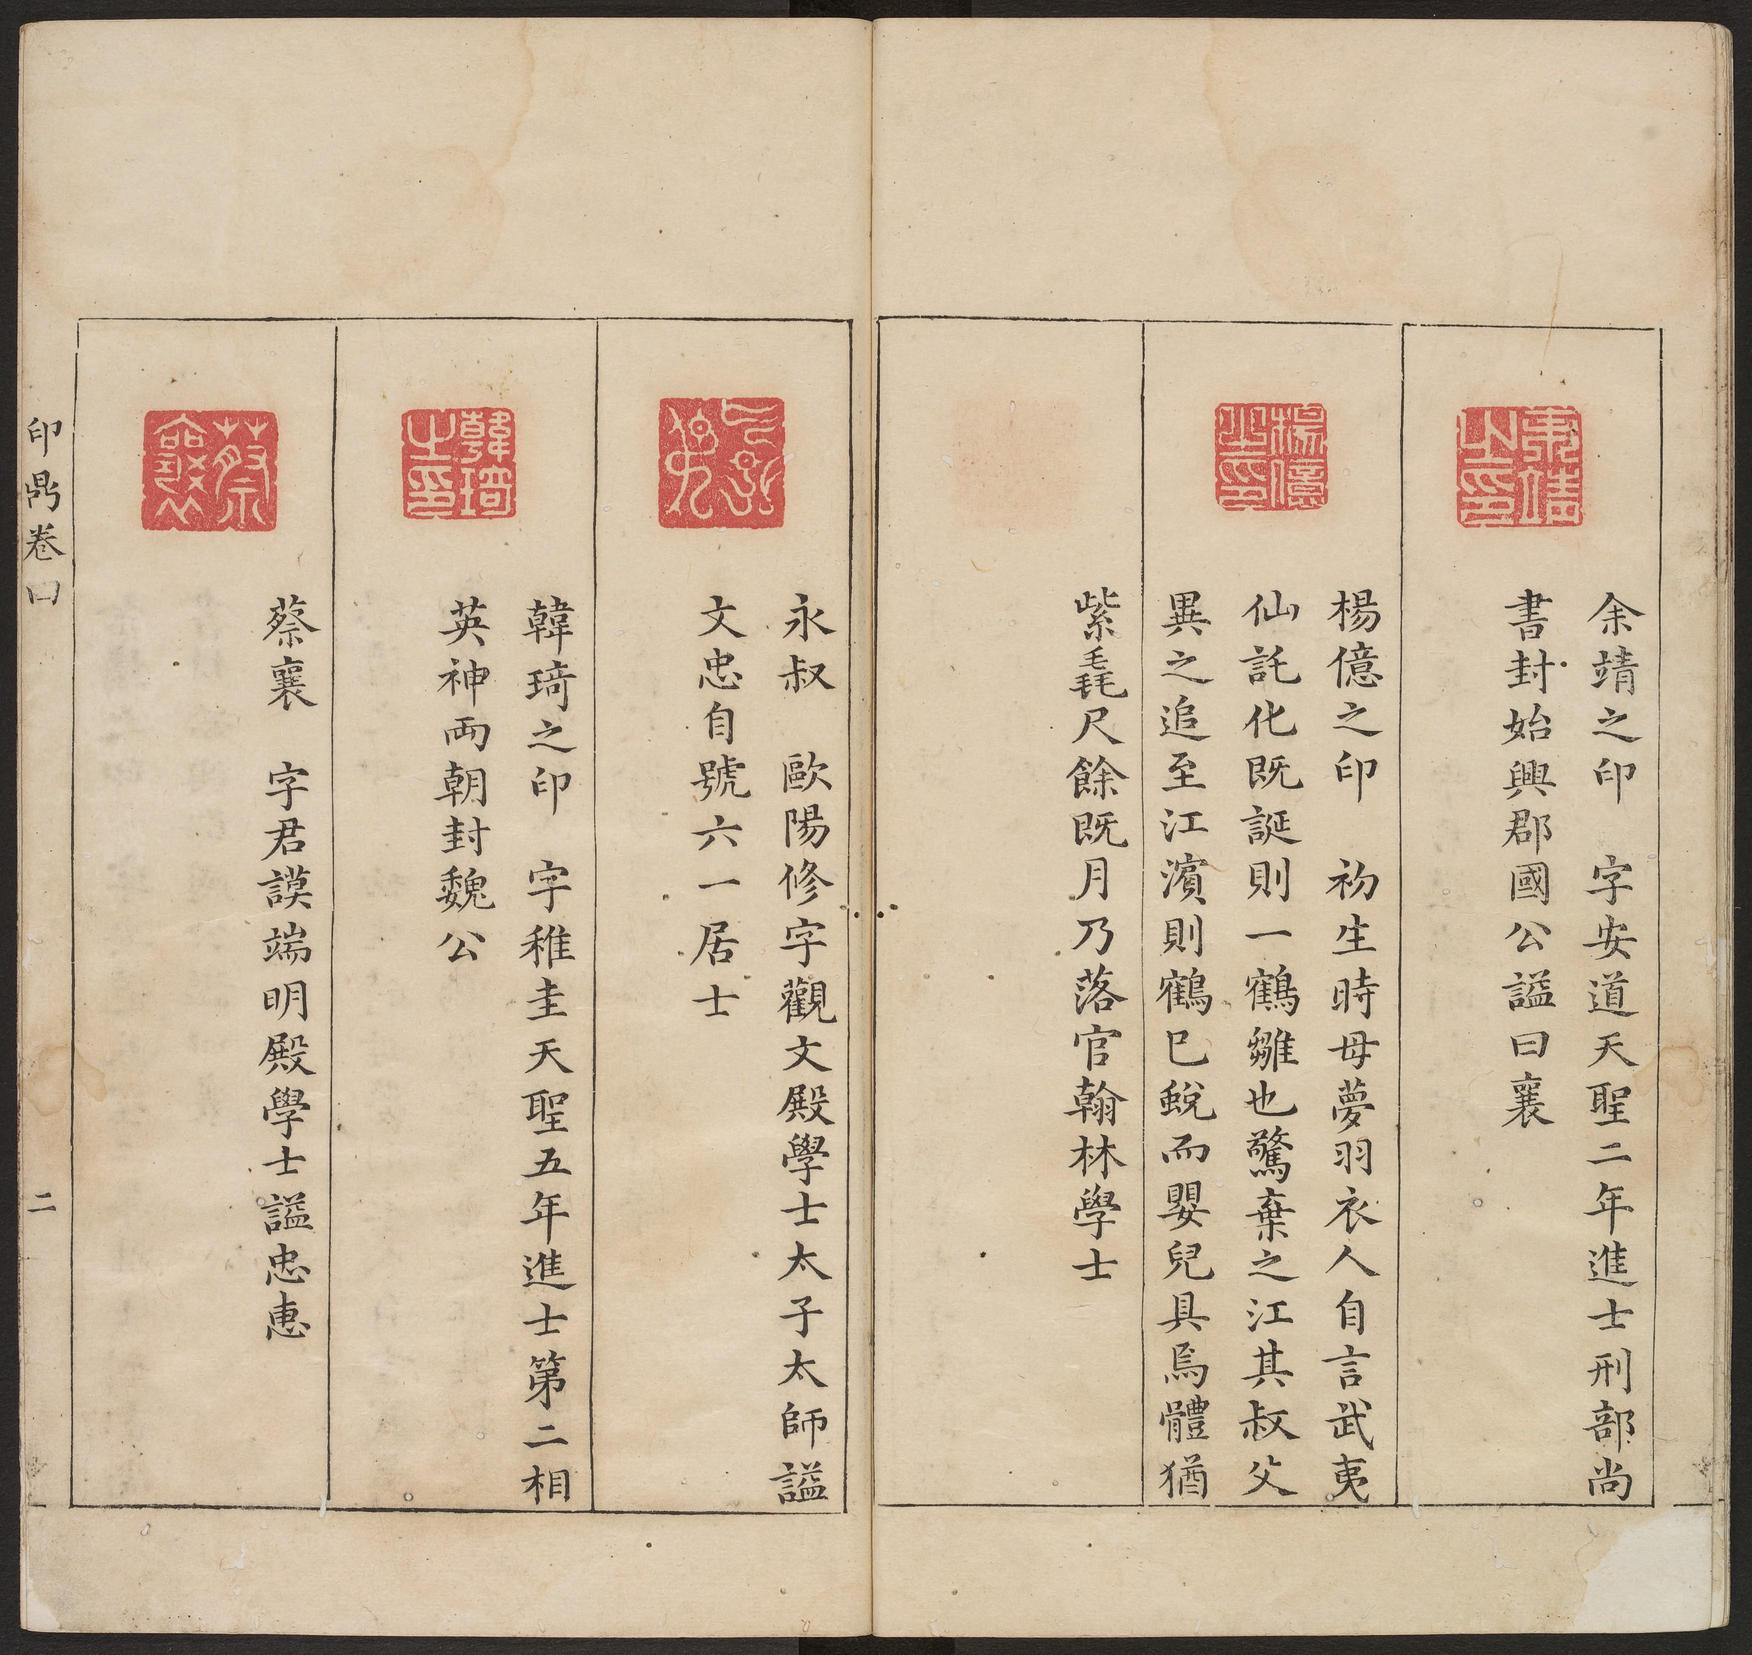 余靖之印
余靖之印　字安道天聖二年進士刑部尚
書封始興郡國公謚曰襄
楊億之印
楊億之印　初生時母夢羽衣人自言武夷
仙託化既誕則一鶴雛也驚棄之江其叔父
異之追至江濱則鶴巳蛻而嬰兒具焉體猶
紫毳尺餘既月乃落官翰林學士
永叔
永叔　歐陽修字觀文殿學士太子太師謚
文忠自號六一居士
韓琦之印
韓琦之印　字稚圭天聖五年進士第二相
英神両朝封魏公
蔡襄
蔡襄　字君謨端明殿學士謚忠惠
印鼎卷四
二